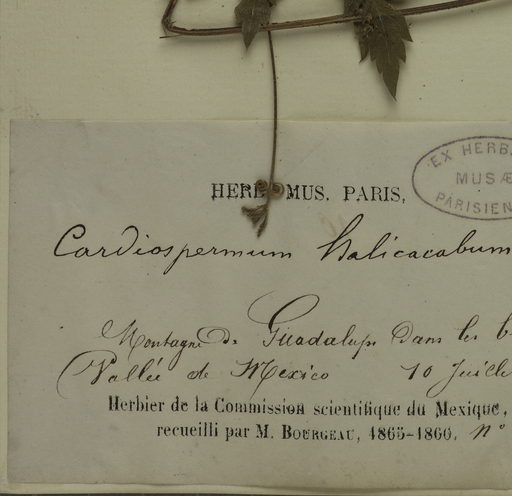 HERB. MUS. PARIS.
EX HERB
MUSÆ
PARISIEN
Cardiospermum halicacabum
Montagne de Guadalupe dans les b
(Vallée de Mexico 10 Juille
Herbier de la Commission scientifique du Mexique,
recueilli par M. BOURGEAU, 1865-1866. n°